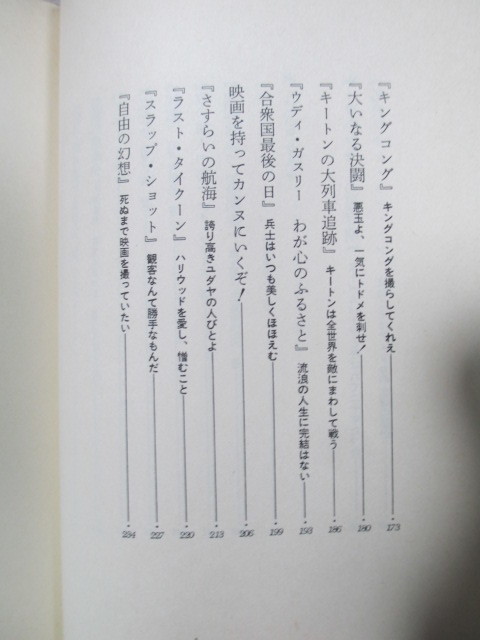 『キングコング』 キングコングを撮らしてくれえ 173
『大いなる決闘』 悪玉よ、一気にトドメを刺せ! 180
『キートンの大列車追跡』 キートンは全世界を敵にまわして戦う 186
『ウディ・ガスリー わが心のふるさと』 流浪の人生に完結はない 193
『合衆国最後の日』 兵士はいつも美しくほほえむ 199
映画を持ってカンヌにいくぞ! 206
『さすらいの航海』 誇り高きユダヤの人びとよ 213
『ラスト・タイクーン』 ハリウッドを愛し、憎むこと 220
『スラップ・ショット』 観客なんて勝手なもんだ 227
『自由の幻想』 死ぬまで映画を撮っていたい 234